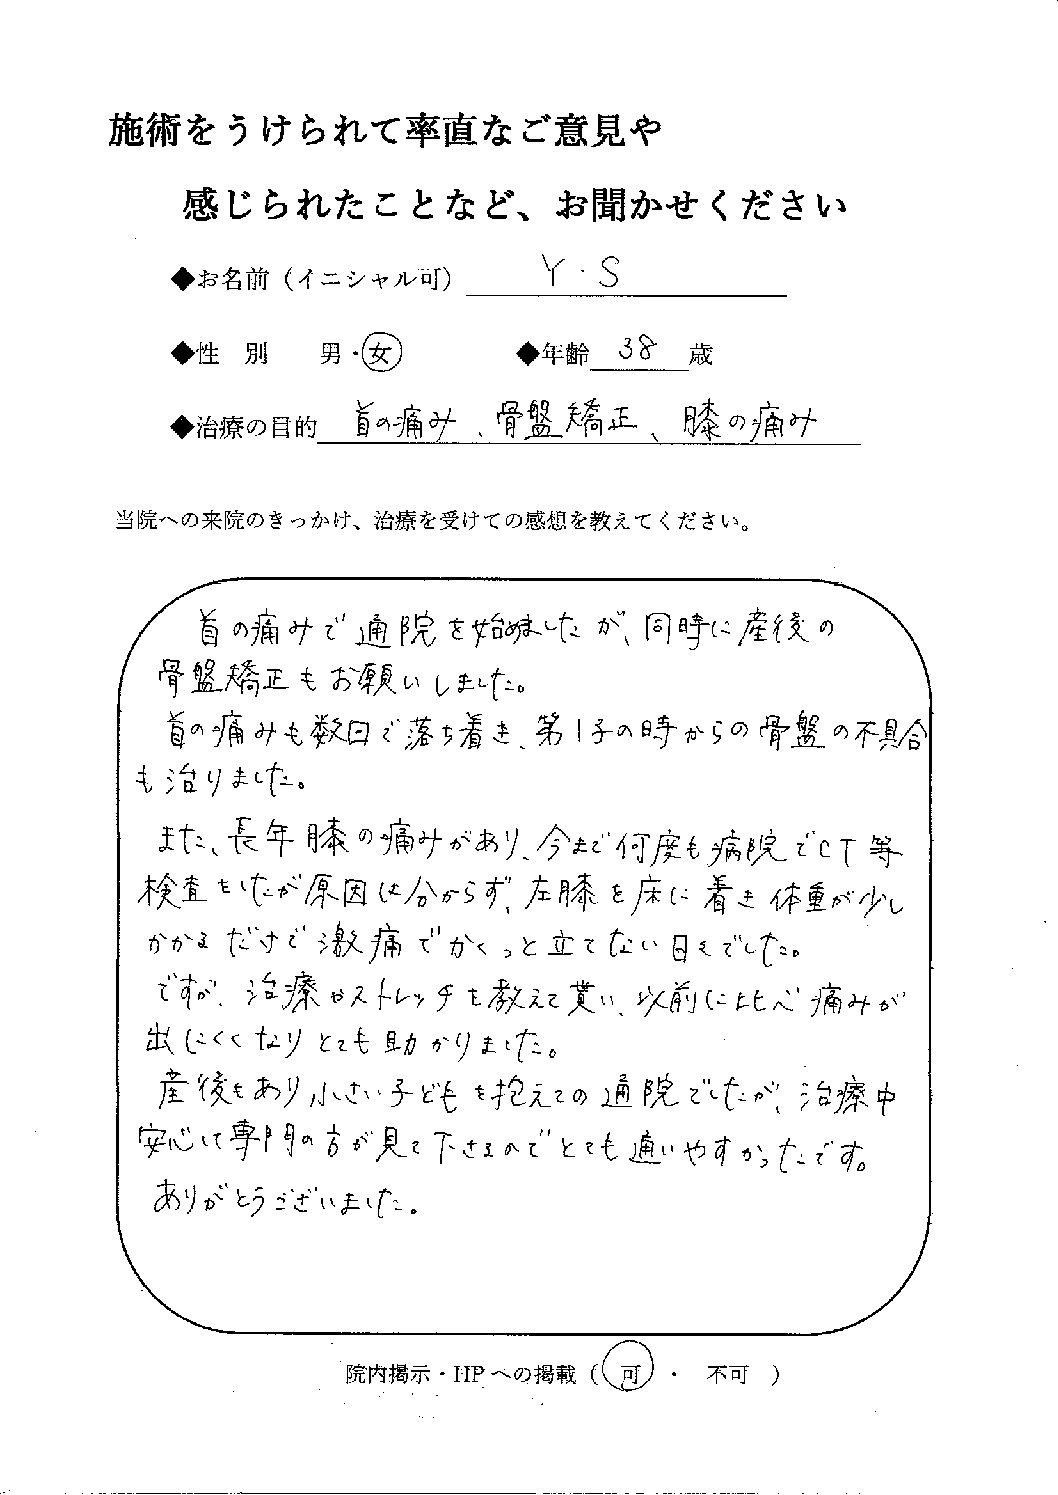 施術をうけられて率直なご意見や
感じられたことなど、お聞かせください
◆お名前（イニシャル可） Y・S
◆性 別 男・女 ◆年齢 38 歳
◆治療の目的 首の痛み、骨盤矯正、膝の痛み
当院への来院のきっかけ、治療を受けての感想を教えてください。
首の痛みで通院を始めましたが、同時に産後の
骨盤矯正もお願いしました。
首の痛みも数日で落ち着き、第1子の時からの骨盤の不具合
も治りました。
また、長年膝の痛みがあり、今まで何度も病院でCT等
検査をしたが原因は分からず、左膝を床に着き体重が少し
かかるだけで激痛でかくっと立てない日々でした。
ですが、治療やストレッチを教えて貰い、以前に比べ痛みが
出にくくなりとても助かりました。
産後もあり小さい子どもを抱えての通院でしたが、治療中
安心して専門の方が見て下さるのでとても通いやすかったです。
ありがとうございました。
院内掲示・HPへの掲載（ 可 ・ 不可 ）